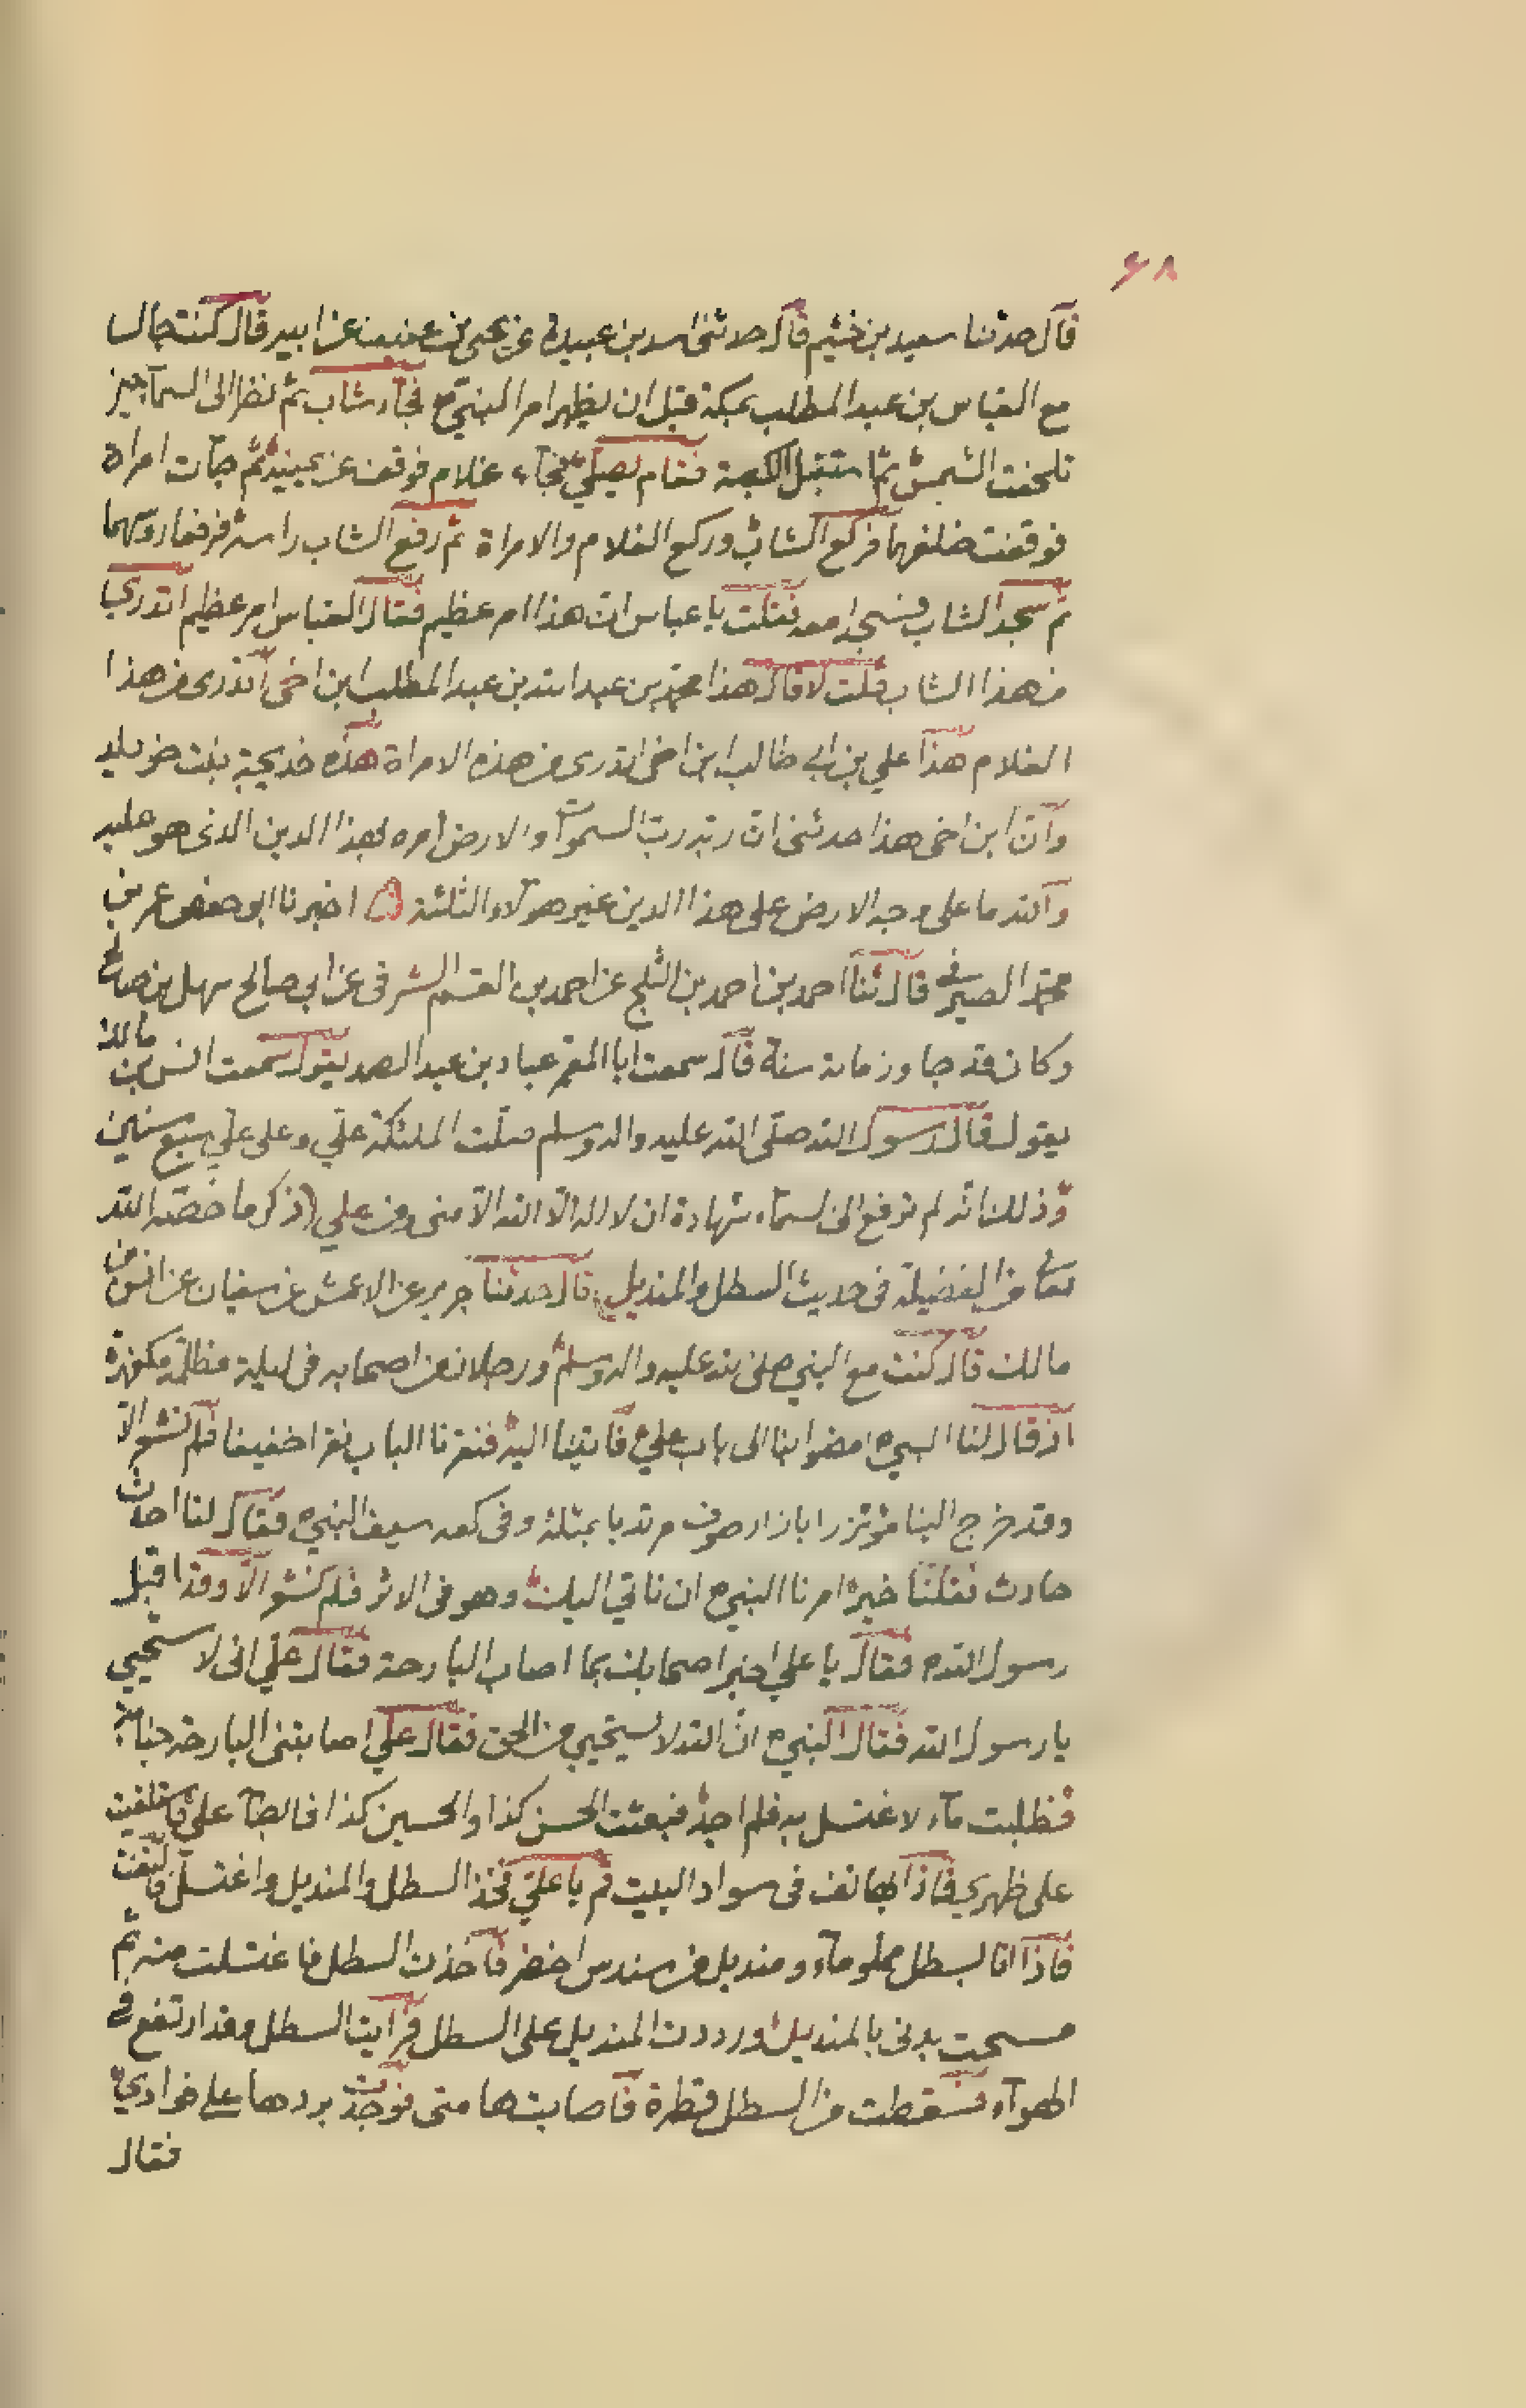 ۶۸
قال حدثنا سعيد بن خثيم قال حدثنی اسد بن عبيدة عن يحيى بن عفيف عن ابيه قال كنت جالسا
مع العباس بن عبد المطلب بمكة قبل ان يظهر امر النبي ع فجآء شاب ثم نظر الى السمآ حين
تلحفت الشمس ثم استقبل الكعبة فقام يصلي فجآء غلام فوقف عن يمينه ثم جآت امراة
فوقفت خلفهما فركع الشاب وركع الغلام والامراة ثم رفع الشاب راسه فرفعا روسهما
ثم سجد الشاب فسجدا معه فقلت يا عباس ان هذا امر عظيم فقال العباس امر عظيم اتدري
من هذا الشاب قلت لا قال هذا محمد بن عبد الله بن عبد المطلب ابن اخی اتدری من هذا
الغلام هذا علي بن ابي طالب ابن اخی اتدری من هذه الامراة هذه خديجة بنت خويلد
وان ابن اخی هذا حدثنی ان ربه رب السموات والارض امره بهذا الدين الذی هو عليه
والله ما على وجه الارض على هذا الدين غير هولآء الثلثة اخبرنا ابو حفص عمر بن
محمد الصيرفی قال ثنا احمد بن احمد بن الثلج عن احمد بن القسم الشرفی عن ابي صالح سهل بن صالح
وكان قد جاوز مائة سنة قال سمعت ابا المعمر عباد بن عبد الصمد يقول سمعت انس بن مالك
يقول قال رسول الله صلى الله عليه واله وسلم صلت الملئكة علي وعلى علي سبع سنين
وذلك انه لم ترفع الى السمآء شهادة ان لا اله الا الله الا منی ومن علي ذكر ما خصه الله
تعا من الفضيلة فی حديث السطل والمنديل قال حدثنا جرير عن الاعمش عن سفيان عن انس بن
مالك قال كنت مع النبي صلى الله عليه واله وسلم ورجلان من اصحابه فی ليلة مظلمة مكفهرة
اذ قال لنا النبي امضوا بنا الى باب علي فاتينا اليه فنقرنا الباب نقرا خفيفا فلم نشعر الا
وقد خرج الينا مؤتزرا بازار صوف مرتديا بمثله وفی كفه سيف النبي فقال لنا احدث
حادث فقلنا خير امرنا النبي ان ناتي اليك وهو فی الاثر فلم نشعر الا وقد اقبل
رسول الله فقال يا علي اخبر اصحابك بما اصاب البارحة فقال علي انی لاستحيي
يا رسول الله فقال النبي ان الله لا يستحيي من الحق فقال علي اصابتنی البارحة جنابة
فطلبت مآء لاغتسل به فلم اجد فبعثت الحسن كذا والحسين كذا فابطآ علي فاستلقيت
على ظهري فاذا بهاتف فی سواد البيت قم يا علي فخذ السطل والمنديل واغتسل فالتفت
فاذا انا بسطل مملو مآء ومنديل من سندس اخضر فاخذت السطل فاغتسلت منه ثم
مسحت بدنی بالمنديل ورددت المنديل على السطل فرايت السطل وقد ارتفع فی
الهوآء فسقطت من السطل قطرة فاصابتها منی فوجدت بردها على فوادي
فقال